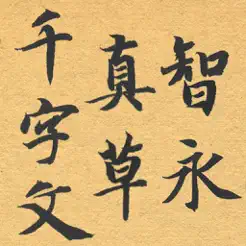 智永
真草
千字文